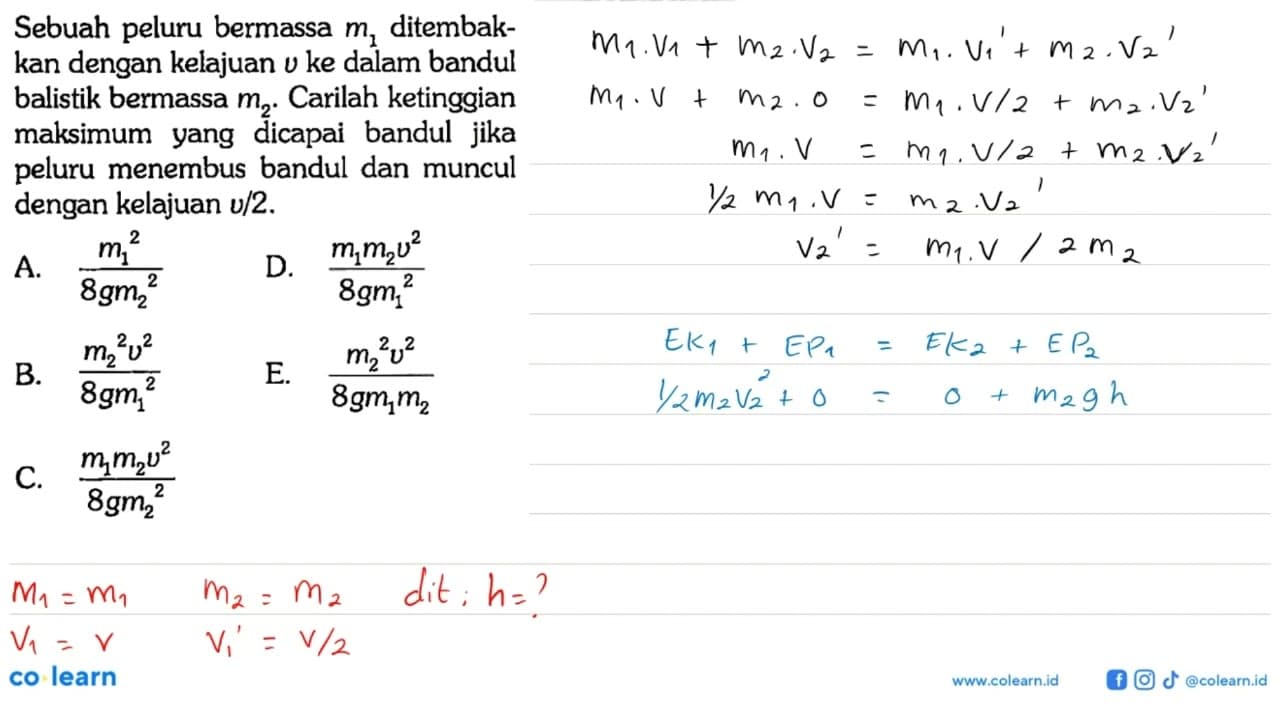 Sebuah peluru bermassa m₁ ditembak-
kan dengan kelajuan υ ke dalam bandul
balistik bermassa m₂. Carilah ketinggian
maksimum yang dicapai bandul jika
peluru menembus bandul dan muncul
dengan kelajuan υ/2.
A. m₁²/8gm₂²
D. m₁m₂υ²/8gm₁²
B. m₂²υ²/8gm₁²
E. m₂²υ²/8gm₁m₂
C. m₁m₂υ²/8gm₂²
m₁.v₁ + m₂.v₂ = m₁.v₁' + m₂.v₂'
m₁.v + m₂.0 = m₁.v/2 + m₂.v₂'
m₁.v = m₁.v/2 + m₂.v₂'
1/2 m₁.v = m₂.v₂'
v₂' = m₁.v / 2m₂
EK₁ + EP₁ = EK₂ + EP₂
1/2m₂v₂² + 0 = 0 + m₂gh
m₁ = m₁ m₂ = m₂ dit : h = ?
v₁ = v v₁' = v/2
co learn
www.colearn.id @colearn.id